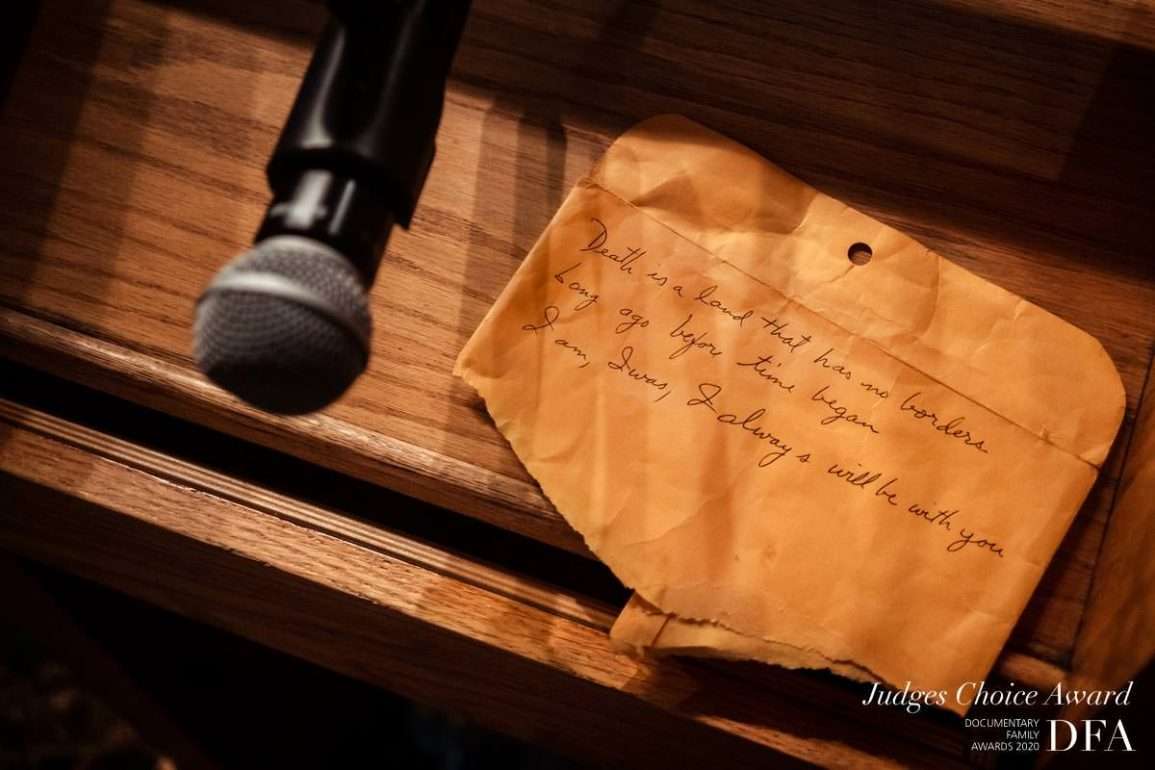 Death is a land that has no borders
Long ago before time began
I am, I was, I always will be with you
Judges Choice Award
DOCUMENTARY
FAMILY
AWARDS 2020
DFA